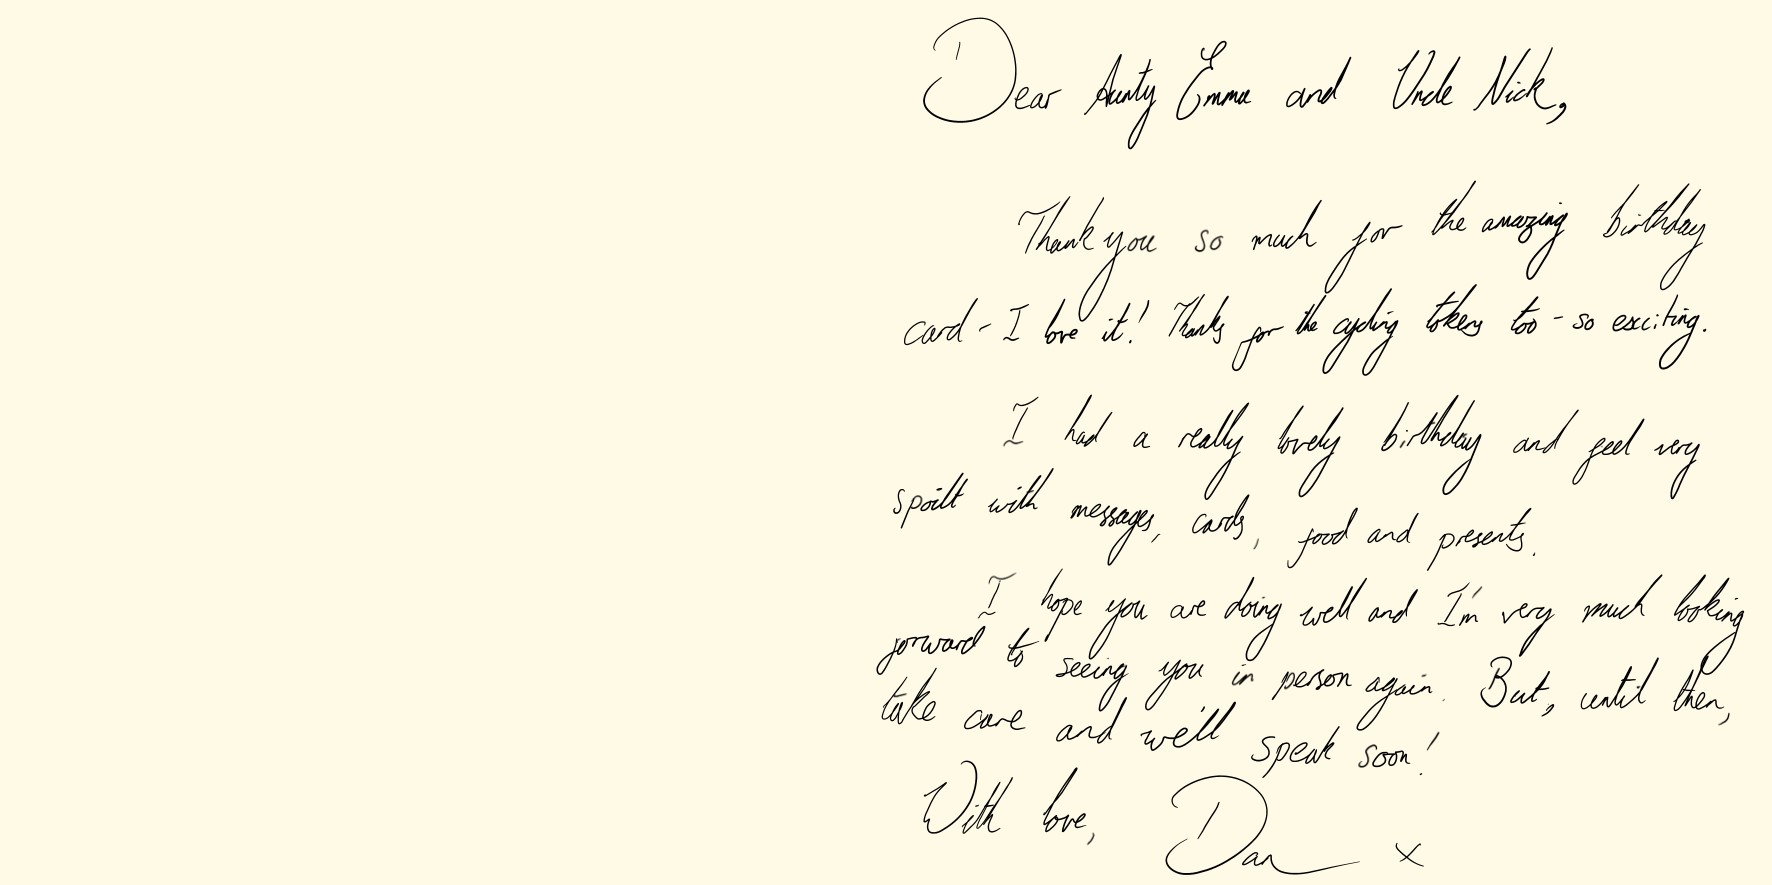 Dear Aunty Emma and Uncle Nick,
Thank you so much for the amazing birthday
card - I love it! Thanks for the cycling tokens too - so exciting.
I had a really lovely birthday and feel very
spoilt with messages, cards, food and presents.
I hope you are doing well and I'm very much looking
forward to seeing you in person again. But, until then,
take care and we'll speak soon!
With love, Dan x